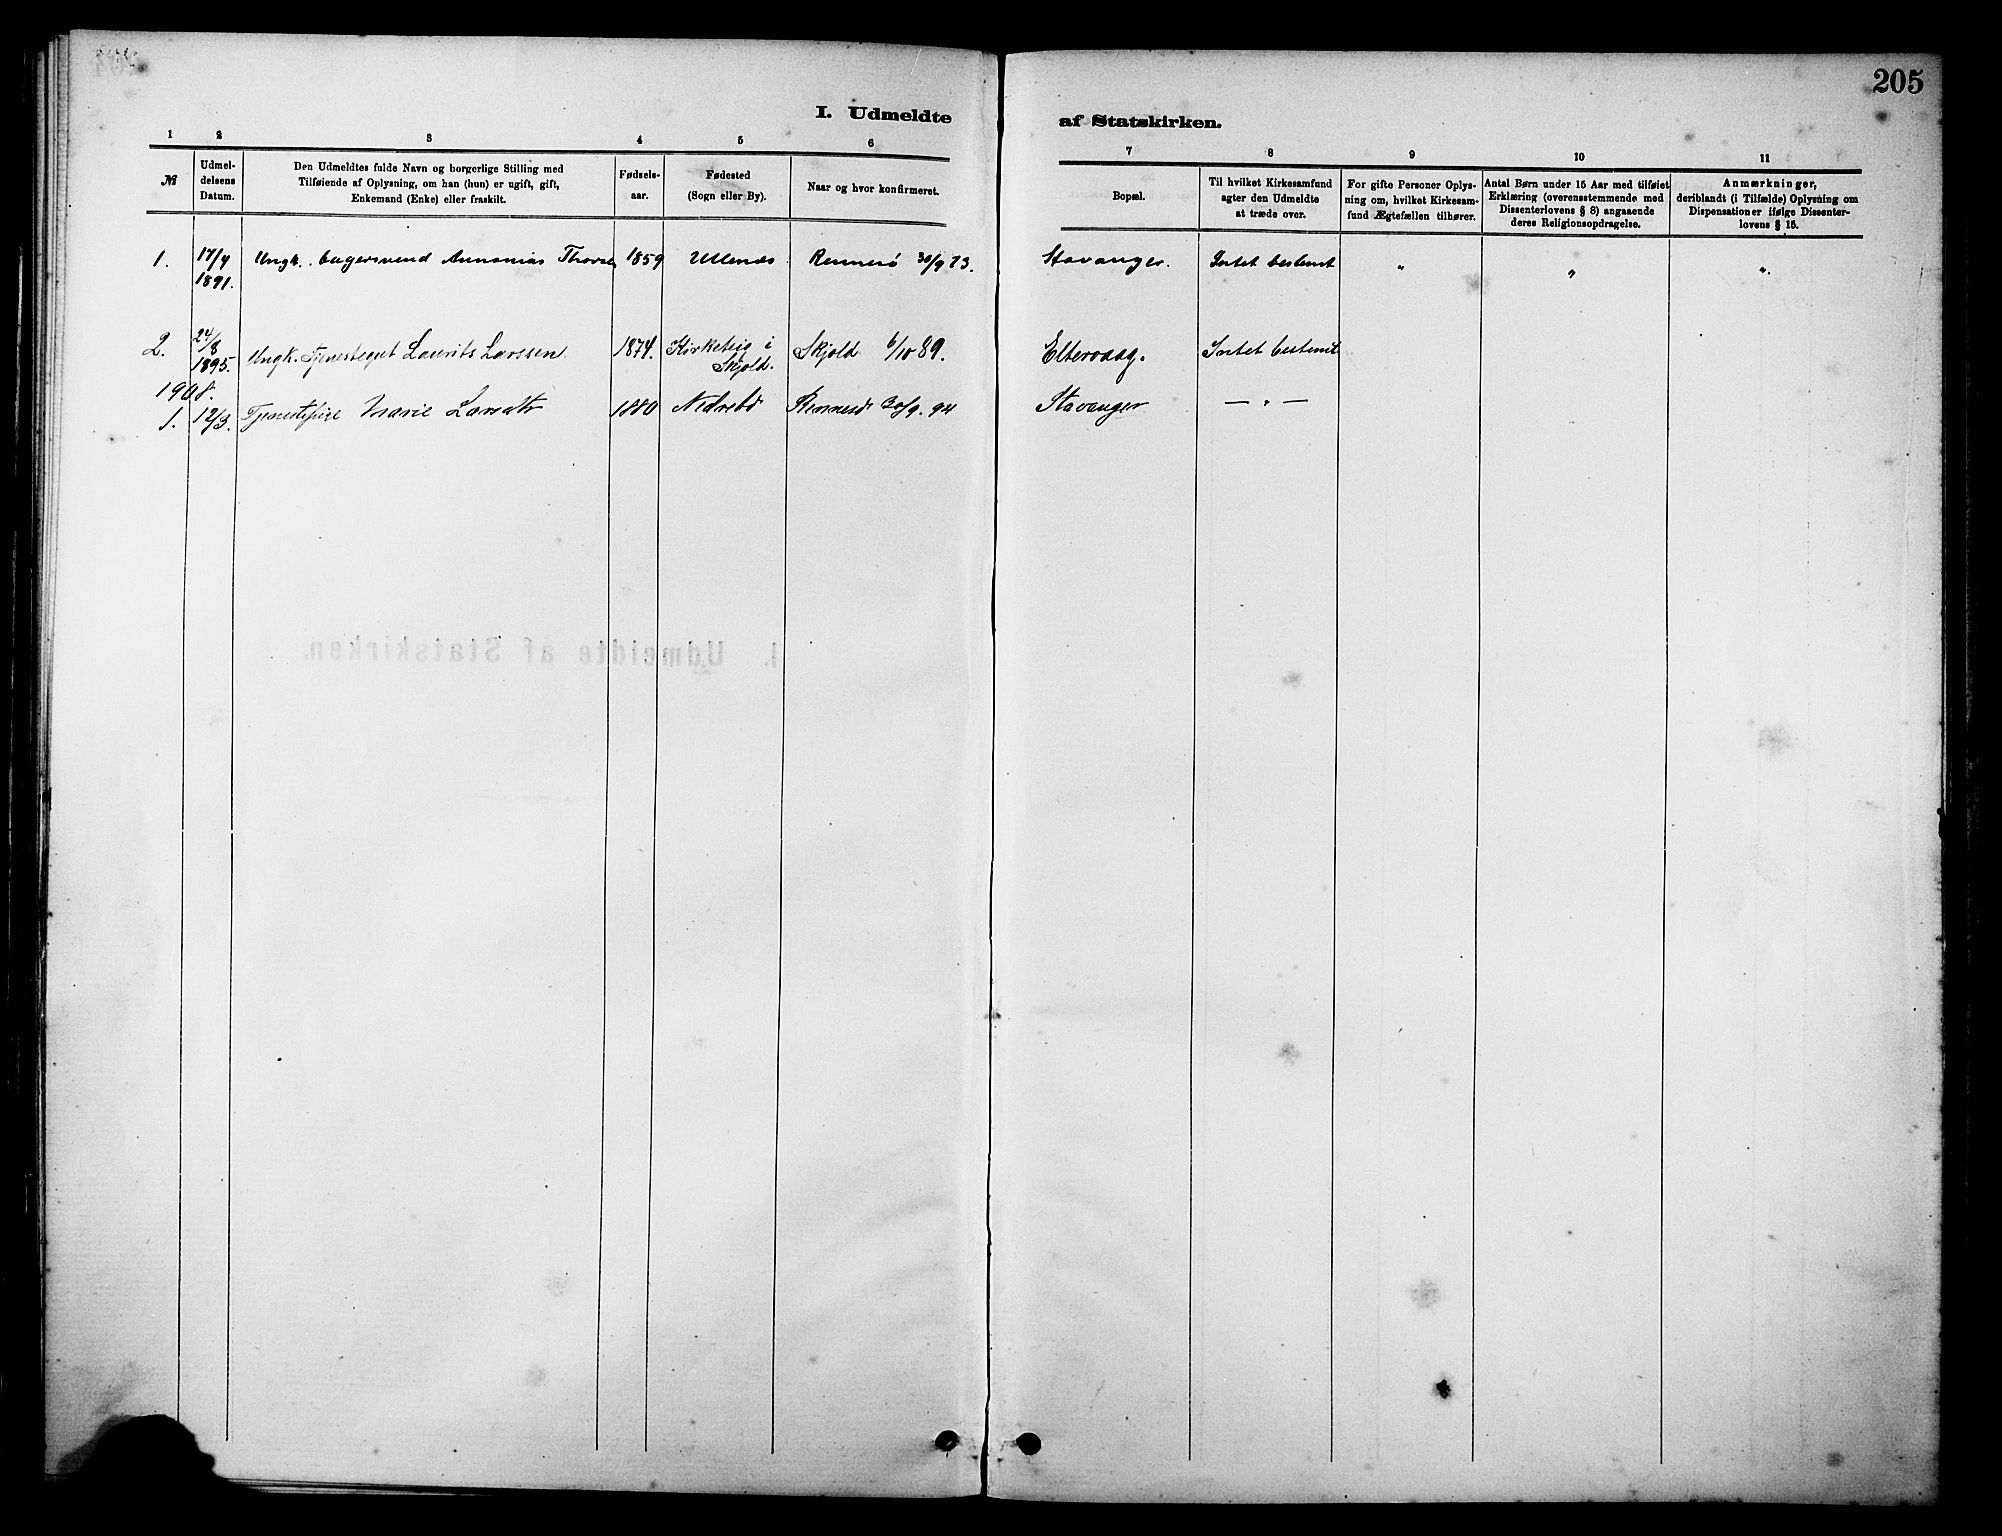 205
I. Udmeldte af Statskirken.
1 2 3 4 5 6 7 8 9 10 11
№
Udmel-
delsens
Datum.
Den Udmeldtes fulde Navn og borgerlige Stilling med
Tilføiende af Oplysning, om han (hun) er ugift, gift,
Enkemand (Enke) eller fraskilt.
Fødsels-
aar.
Fødested
(Sogn eller By).
Naar og hvor konfirmeret.
Bopæl.
Til hvilket Kirkesamfund
agter den Udmeldte
at træde over.
For gifte Personer Oplys-
ning om, hvilket Kirkesam-
fund Ægtefællen tilhører.
Antal Børn under 15 Aar med tilføiet
Erklæring (overensstemmende med
Dissenterlovens § 8) angaaende
deres Religionsopdragelse.
Anmærkninger,
deriblandt (i Tilfælde) Oplysning om
Dispensationer ifølge Dissenter-
lovens § 15.
1. 17/4 1891. Ungk. bagersvend Annanias 1859 Utlenæs Rennesö 30/9 73. Stavanger. Intet bestemt " " ".
2. 24/8 1895. Ungk. Tjenestegut Laurits Larssen 1874. Kirketeig i Skjold. Skjold 6/10 89. Eltervaag. Intet bestemt
1908.
1. 12/3. Tjenestepige Marie Larsdtr 1880 Nedrebö Rennesö 30/9. 94 Stavanger — " —
I. Udmeldte af Statskirken.